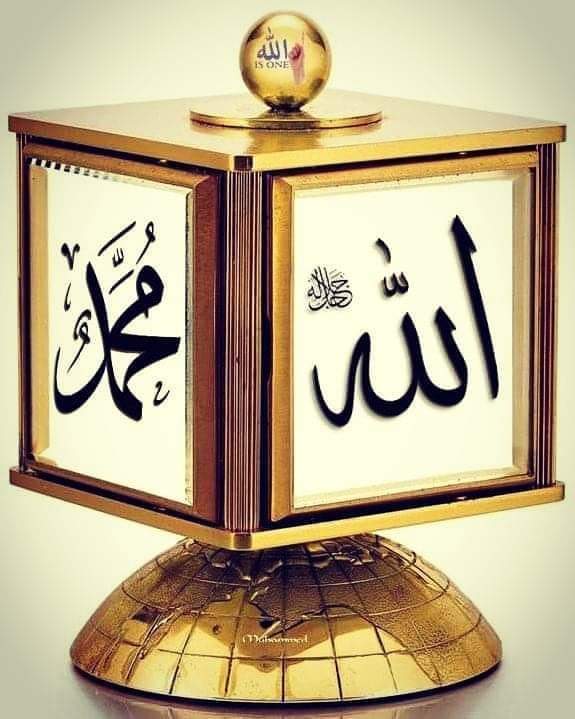 الله
IS ONE
محمد
الله
جل جلاله
Muhammed